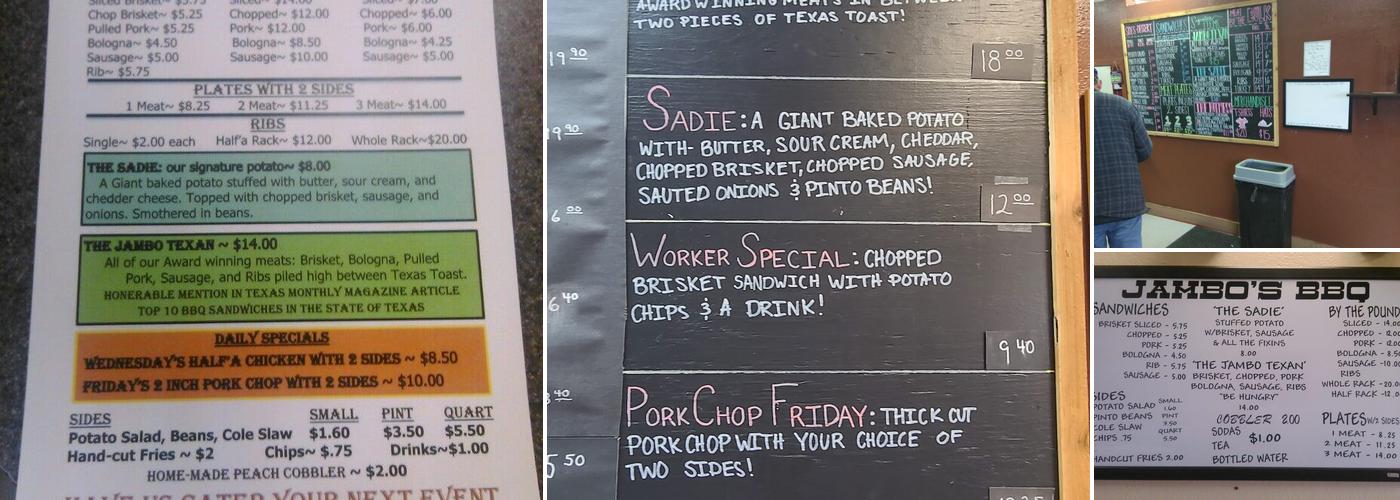 Chop Brisket~ $5.25 Chopped~ $12.00 Chopped~ $6.00
Pulled Pork~ $5.25 Pork~ $12.00 Pork~ $6.00
Bologna~ $4.50 Bologna~ $8.50 Bologna~ $4.25
Sausage~ $5.00 Sausage~ $10.00 Sausage~ $5.00
Rib~ $5.75
PLATES WITH 2 SIDES
1 Meat~ $8.25 2 Meat~ $11.25 3 Meat~ $14.00
RIBS
Single~ $2.00 each Half'a Rack~ $12.00 Whole Rack~$20.00
THE SADIE: our signature potato~ $8.00
A Giant baked potato stuffed with butter, sour cream, and
chedder cheese. Topped with chopped brisket, sausage, and
onions. Smothered in beans.
THE JAMBO TEXAN ~ $14.00
All of our Award winning meats: Brisket, Bologna, Pulled
Pork, Sausage, and Ribs piled high between Texas Toast.
HONERABLE MENTION IN TEXAS MONTHLY MAGAZINE ARTICLE
TOP 10 BBQ SANDWICHES IN THE STATE OF TEXAS
DAILY SPECIALS
WEDNESDAY'S HALF'A CHICKEN WITH 2 SIDES ~ $8.50
FRIDAY'S 2 INCH PORK CHOP WITH 2 SIDES ~ $10.00
SIDES SMALL PINT QUART
Potato Salad, Beans, Cole Slaw $1.60 $3.50 $5.50
Hand-cut Fries ~ $2 Chips~ $.75 Drinks~$1.00
HOME-MADE PEACH COBBLER ~ $2.00
HAVE US CATER YOUR NEXT EVENT
AWARD WINNING MEATS IN BETWEEN
TWO PIECES OF TEXAS TOAST!
18.00
SADIE: A GIANT BAKED POTATO
WITH- BUTTER, SOUR CREAM, CHEDDAR,
CHOPPED BRISKET, CHOPPED SAUSAGE,
SAUTED ONIONS & PINTO BEANS!
12.00
WORKER SPECIAL: CHOPPED
BRISKET SANDWICH WITH POTATO
CHIPS & A DRINK!
9 40
PORK CHOP FRIDAY: THICK CUT
PORK CHOP WITH YOUR CHOICE OF
TWO SIDES!
19 90
9 90
6 00
6 40
40
5 50
JAMBO'S BBQ
SANDWICHES
BRISKET SLICED - 5.75
CHOPPED - 5.25
PORK - 5.25
BOLOGNA - 4.50
RIB - 5.75
SAUSAGE - 5.00
SIDES
POTATO SALAD SMALL 1.60
PINTO BEANS PINT 3.50
COLE SLAW QUART 5.50
CHIPS .75
HANDCUT FRIES 2.00
'THE SADIE'
STUFFED POTATO
W/BRISKET, SAUSAGE
& ALL THE FIXINS
8.00
'THE JAMBO TEXAN'
BRISKET, CHOPPED, PORK
BOLOGNA, SAUSAGE, RIBS
"BE HUNGRY"
14.00
COBBLER 2.00
SODAS
TEA $1.00
BOTTLED WATER
BY THE POUND
SLICED - 14.00
CHOPPED - 12.00
PORK - 12.00
BOLOGNA - 8.50
SAUSAGE - 10.00
RIBS
WHOLE RACK - 20.00
HALF RACK - 12.0
PLATES W/2 SIDES
1 MEAT - 8.25
2 MEAT - 11.25
3 MEAT - 14.00